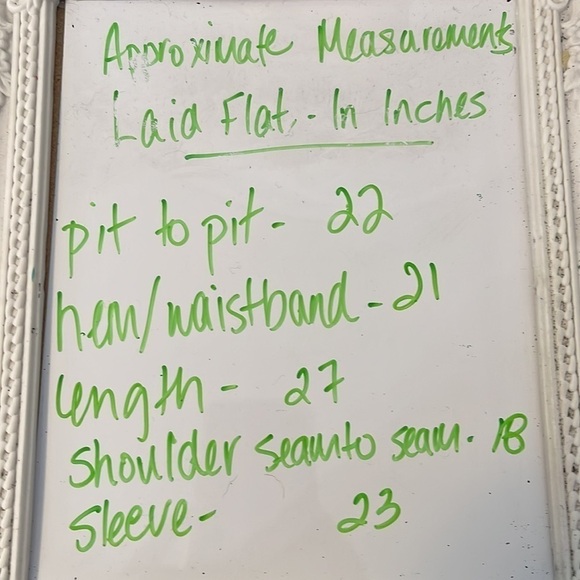 Approximate Measurements
Laid Flat - In Inches
pit to pit - 22
hem/waistband - 21
length - 27
shoulder seam to seam - 18
sleeve - 23